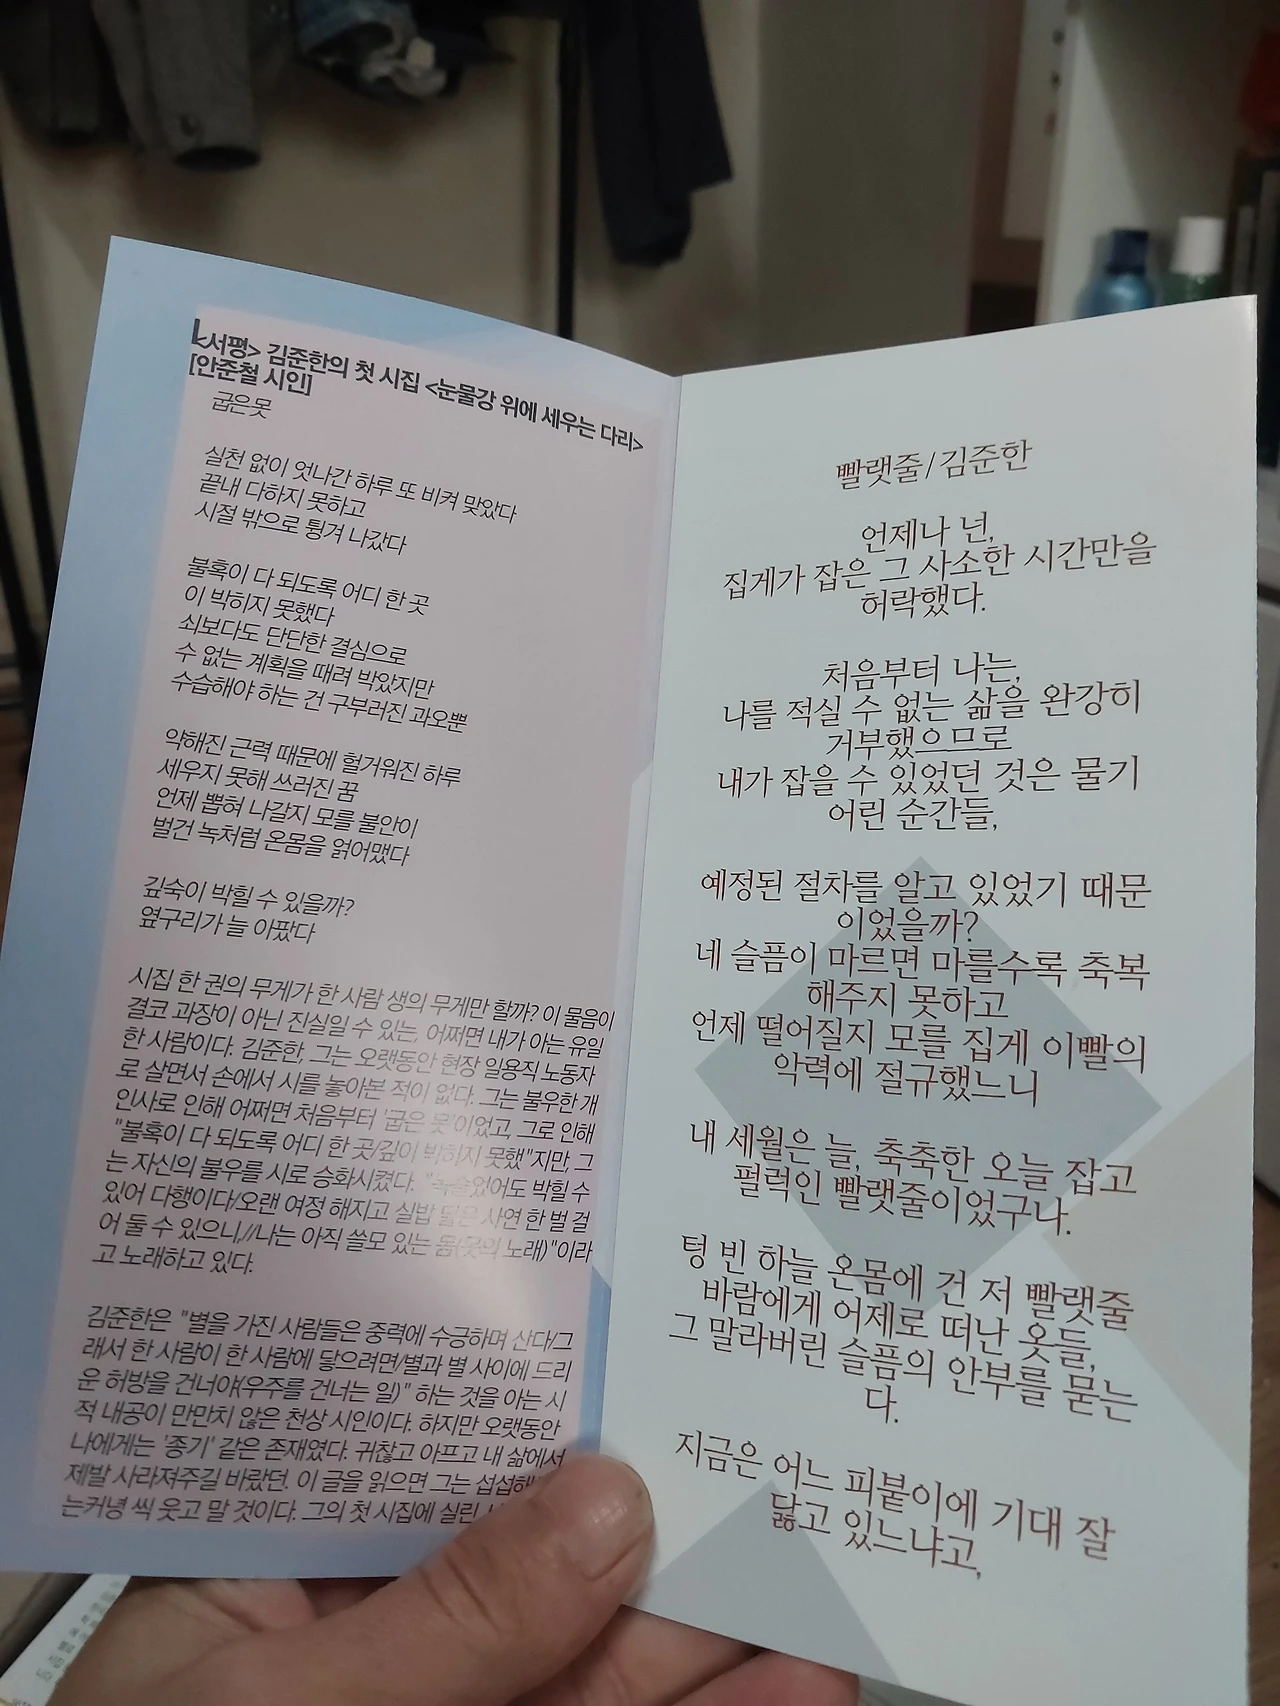 <서평> 김준한의 첫 시집 <눈물강 위에 세우는 다리>
[안준철 시인]
굽은못
실천 없이 엇나간 하루 또 비켜 맞았다
끝내 다하지 못하고
시절 밖으로 튕겨 나갔다
불혹이 다 되도록 어디 한 곳
이 박히지 못했다
쇠보다도 단단한 결심으로
수 없는 계획을 때려 박았지만
수습해야 하는 건 구부러진 과오뿐
약해진 근력 때문에 헐거워진 하루
세우지 못해 쓰러진 꿈
언제 뽑혀 나갈지 모를 불안이
벌건 녹처럼 온몸을 얽어맸다
깊숙이 박힐 수 있을까?
옆구리가 늘 아팠다
시집 한 권의 무게가 한 사람 생의 무게만 할까? 이 물음이
결코 과장이 아닌 진실일 수 있는, 어쩌면 내가 아는 유일
한 사람이다. 김준한, 그는 오랫동안 현장 일용직 노동자
로 살면서 손에서 시를 놓아본 적이 없다. 그는 불우한 개
인사로 인해 어쩌면 처음부터 '굽은 못'이었고, 그로 인해
"불혹이 다 되도록 어디 한 곳/깊이 박히지 못했"지만, 그
는 자신의 불우를 시로 승화시켰다. "녹슬었어도 박힐 수
있어 다행이다/오랜 여정 해지고 실밥 닳은 사연 한 벌 걸
어 둘 수 있으니,//나는 아직 쓸모 있는 몸(못의 노래)"이라
고 노래하고 있다.
김준한은 "별을 가진 사람들은 중력에 수긍하며 산다/그
래서 한 사람이 한 사람에 닿으려면/별과 별 사이에 드리
운 허방을 건너야(우주를 건너는 일)" 하는 것을 아는 시
적 내공이 만만치 않은 천상 시인이다. 하지만 오랫동안
나에게는 '종기' 같은 존재였다. 귀찮고 아프고 내 삶에서
제발 사라져주길 바랐던. 이 글을 읽으면 그는 섭섭해
는커녕 씩 웃고 말 것이다. 그의 첫 시집에 실린
빨랫줄/김준한
언제나 넌,
집게가 잡은 그 사소한 시간만을
허락했다.
처음부터 나는,
나를 적실 수 없는 삶을 완강히
거부했으므로
내가 잡을 수 있었던 것은 물기
어린 순간들,
예정된 절차를 알고 있었기 때문
이었을까?
네 슬픔이 마르면 마를수록 축복
해주지 못하고
언제 떨어질지 모를 집게 이빨의
악력에 절규했느니
내 세월은 늘, 축축한 오늘 잡고
펄럭인 빨랫줄이었구나.
텅 빈 하늘 온몸에 건 저 빨랫줄
바람에게 어제로 떠난 옷들,
그 말라버린 슬픔의 안부를 묻는
다.
지금은 어느 피붙이에 기대 잘
닳고 있느냐고,